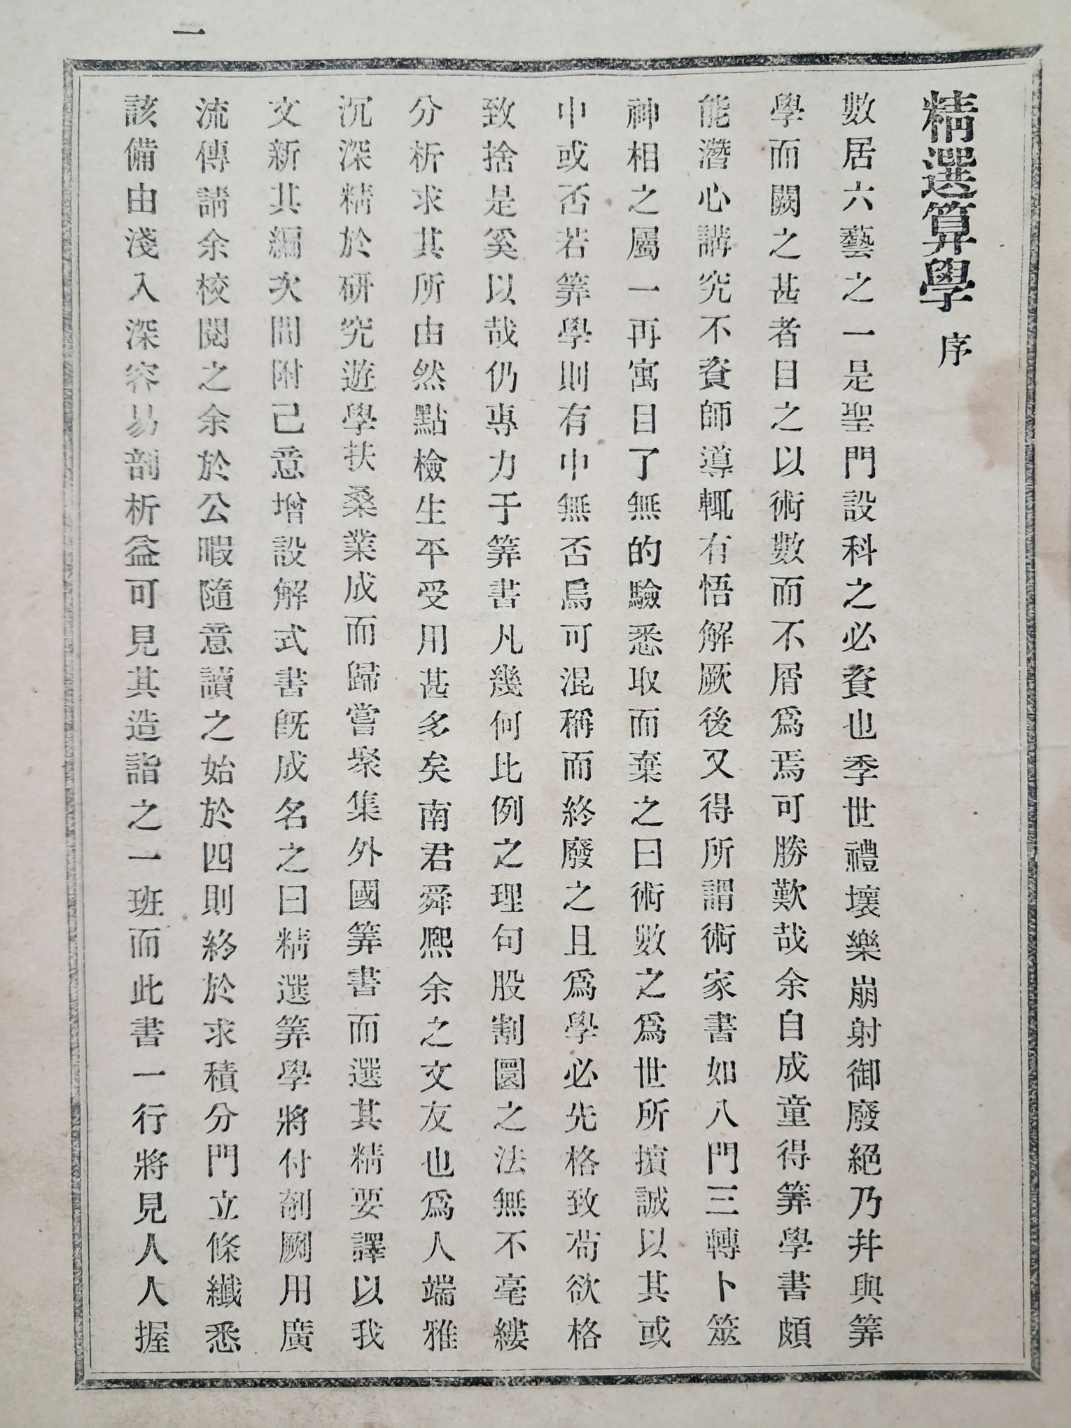 一
精選算學 序
數居六藝之一是聖門設科之必資也季世禮壞樂崩射御廢絕乃幷與筭
學而闕之甚者目之以術數而不屑爲焉可勝歎哉余自成童得筭學書頗
能潛心講究不資師導輒有悟解厥後又得所謂術家書如八門三轉卜筮
神相之屬一再寓目了無的驗悉取而棄之曰術數之爲世所擯誠以其或
中或否若筭學則有中無否烏可混稱而終廢之且爲學必先格致苟欲格
致捨是奚以哉仍專力于筭書凡幾何比例之理句股割圜之法無不毫縷
分析求其所由然點檢生平受用甚多矣南君舜熙余之文友也爲人端雅
沉深精於硏究遊學扶桑業成而歸嘗聚集外國筭書而選其精要譯以我
文新其編次間附己意增設解式書旣成名之曰精選筭學將付剞劂用廣
流傳請余校閱之余於公暇隨意讀之始於四則終於求積分門立條纖悉
該備由淺入深容易剖析益可見其造詣之一班而此書一行將見人人握